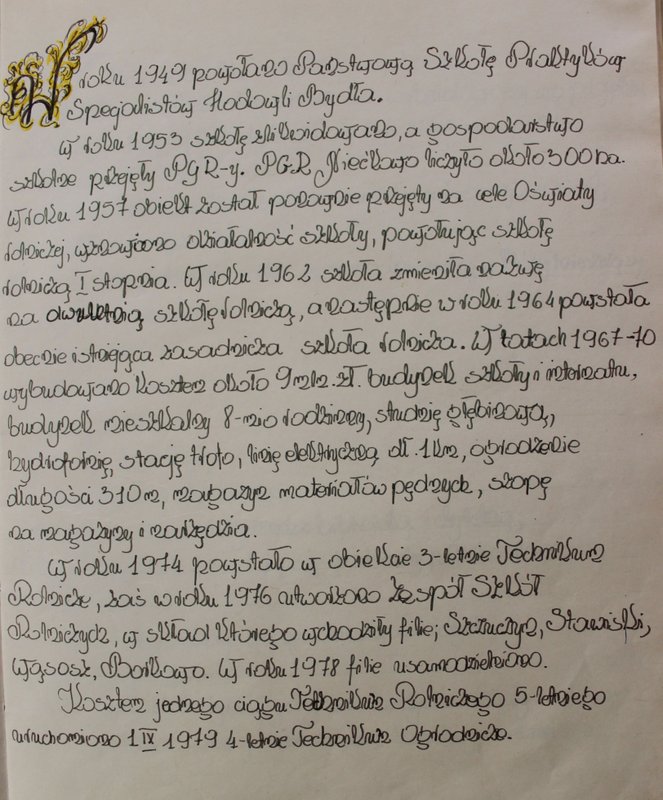 W roku 1949 powołano Państwową Szkołę Praktyków
Specjalistów Hodowli Bydła.
W roku 1953 szkołę zlikwidowano, a gospodarstwo
szkolne przejęły PGR-y. PGR Niećkowo liczyło około 300 ha.
W roku 1957 obiekt został ponownie przejęty na cele Oświaty
rolniczej, wznowiono działalność szkoły, powołując szkołę
rolniczą I stopnia. W roku 1962 szkoła zmieniła nazwę
na dwuletnią szkołę rolniczą, a następnie w roku 1964 powstała
obecnie istniejąca zasadnicza szkoła rolnicza. W latach 1967-70
wybudowano kosztem około 9 mln. zł. budynek szkoły i internatu,
budynek mieszkalny 8-mio rodzinny, studnię głębinową,
hydrofornię, stację trafo, linię elektryczną dł. 1 km, ogrodzenie
długości 310 m, magazyn materiałów pędnych, szopę
na magazyny i narzędzia.
W roku 1974 powstało w obiekcie 3-letnie Technikum
Rolnicze, zaś w roku 1976 utworzono Zespół Szkół
Rolniczych, w skład którego wchodziły filie; Szczuczyn, Stawiski,
Wąsosz, Borkowo. W roku 1978 filie usamodzielniono.
Kosztem jednego ciągu Technikum Rolniczego 5-letniego
uruchomiono 1 IX 1979 4-letnie Technikum Ogrodnicze.